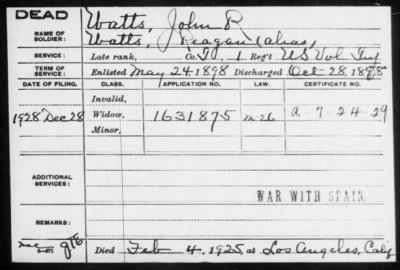 DEAD
NAME OF SOLDIER: Watts, John R
Watts, Reagan (alias)
SERVICE: Late rank, Co. I, 1 Reg't US Vol Inf
TERM OF SERVICE: Enlisted May 24 1898 Discharged Oct 28, 1898
DATE OF FILING. CLASS. APPLICATION NO. LAW. CERTIFICATE NO.
Invalid,
1928 Dec 28 Widow, 1631875 m-26 a-7-24-29
Minor,
ADDITIONAL SERVICES:
WAR WITH SPAIN.
REMARKS:
Died Feb 4, 1925, at Los Angeles, Calif